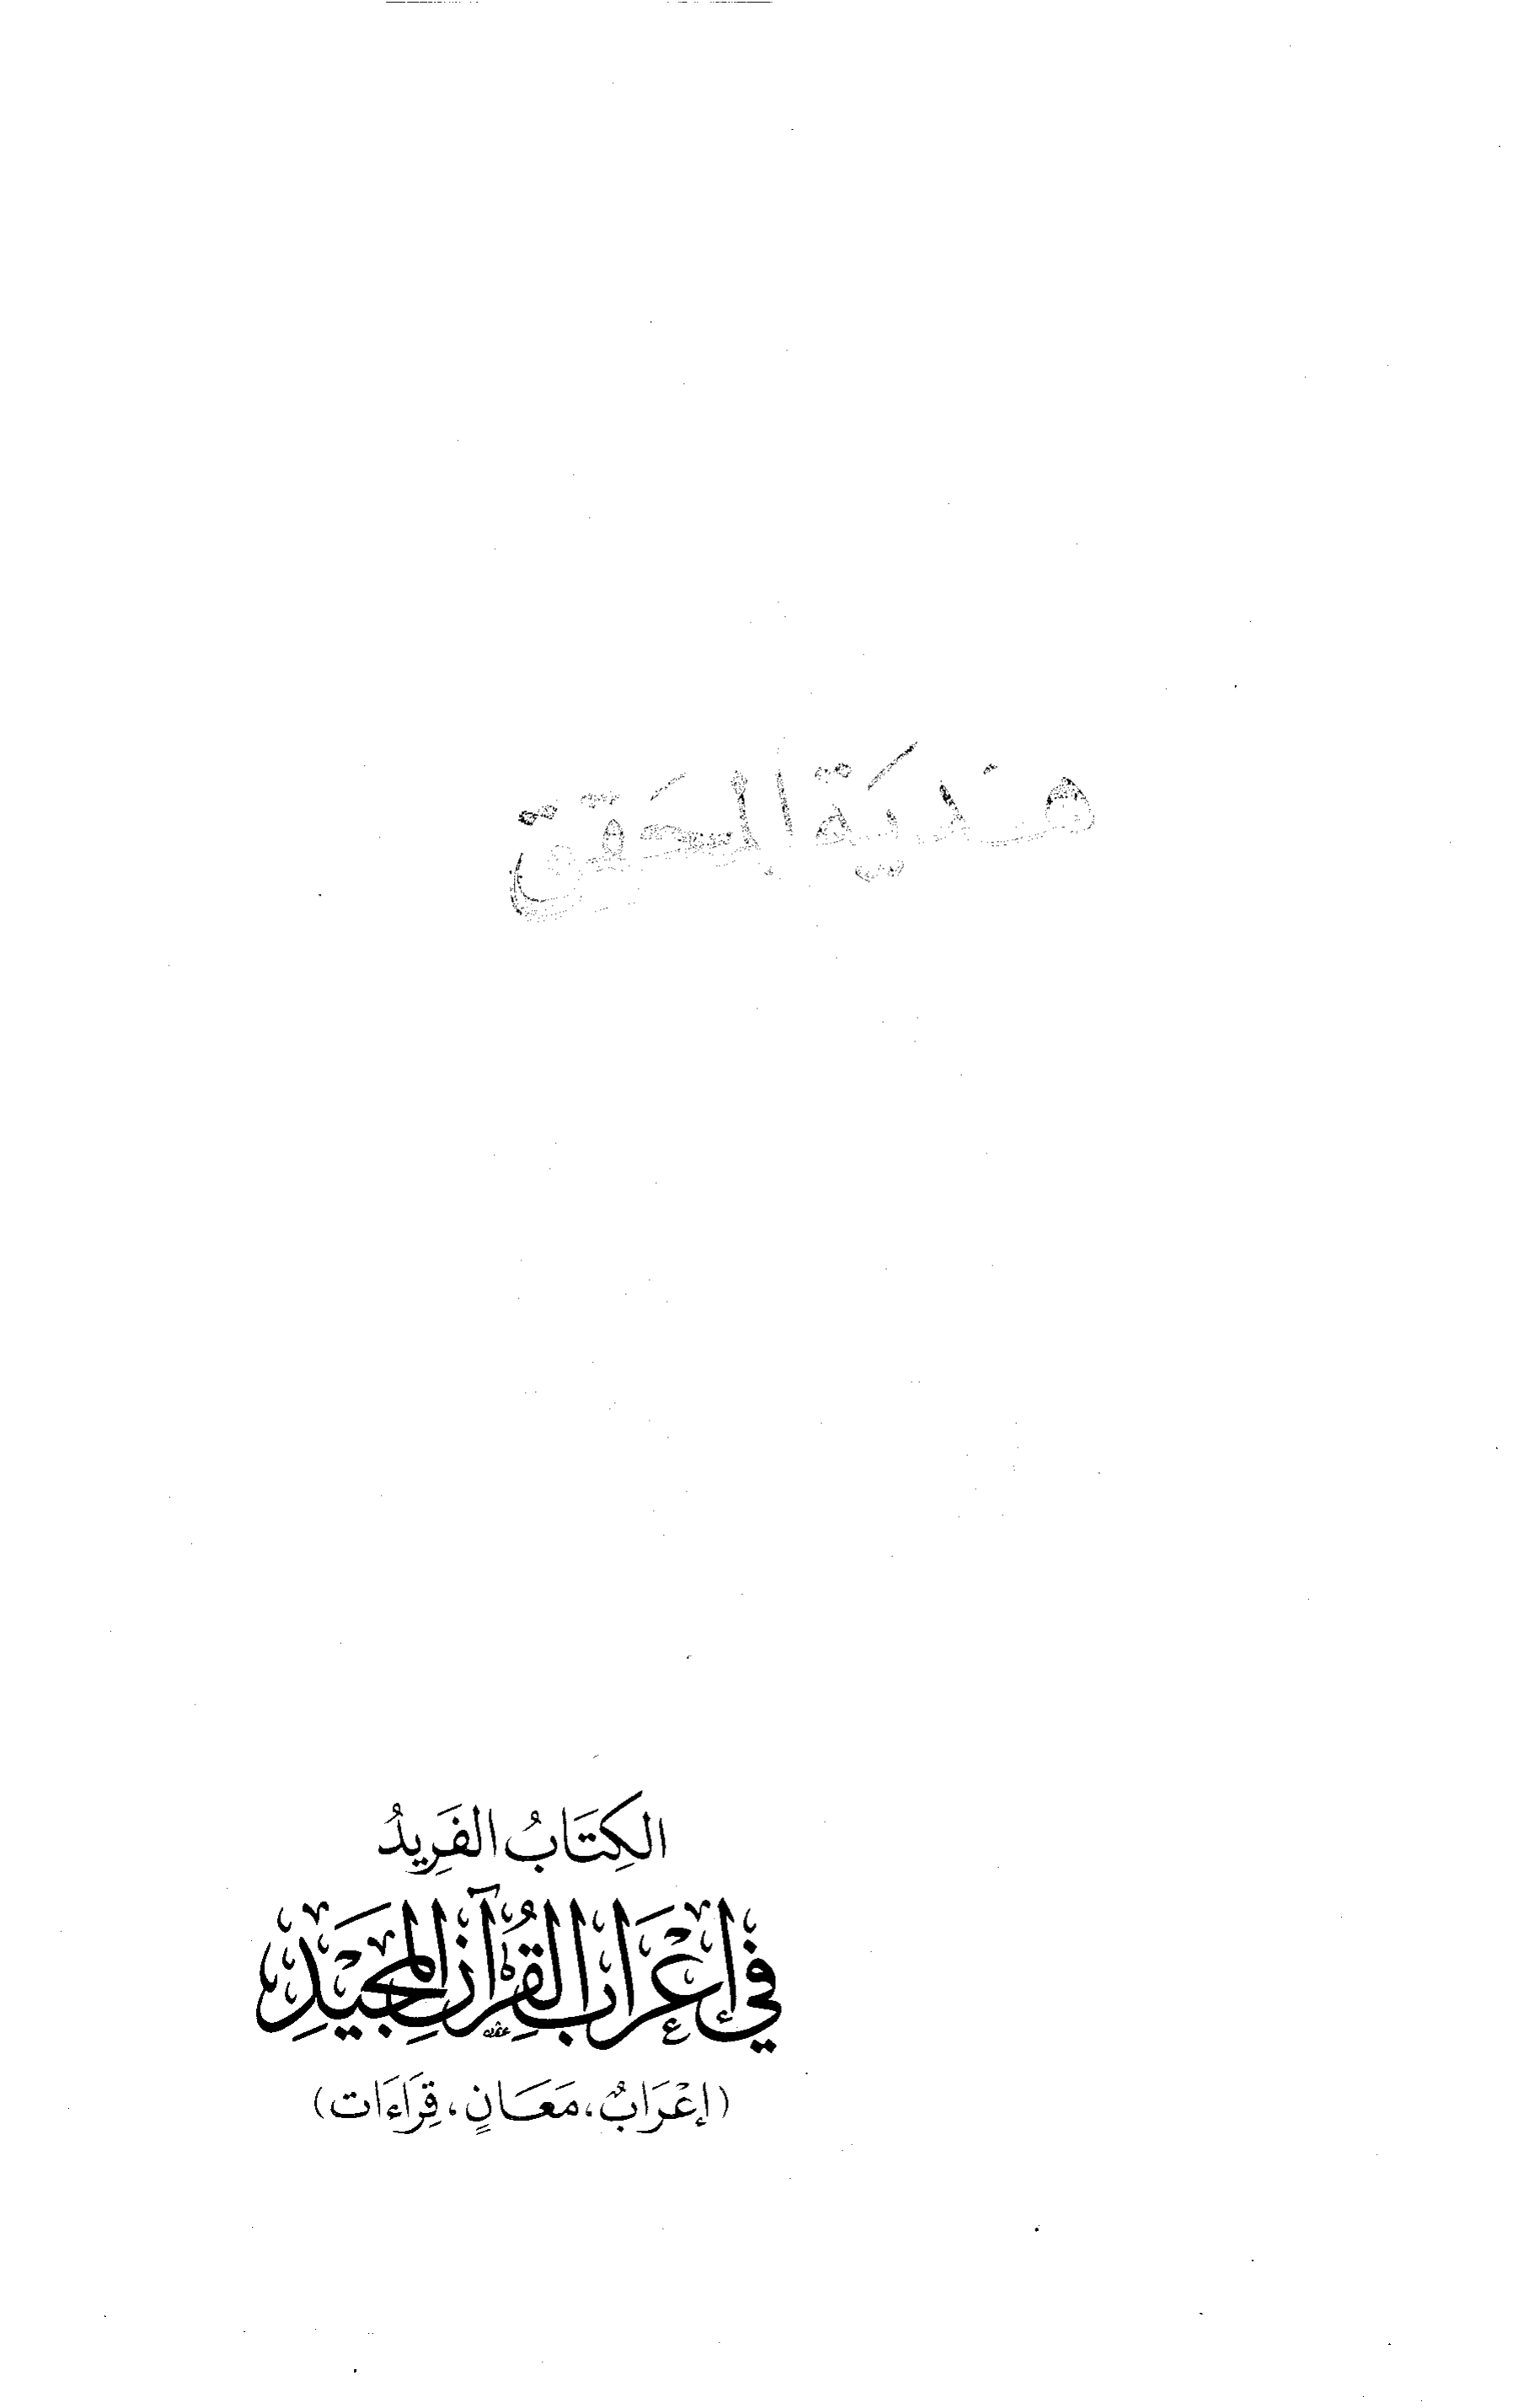 هدية المحقق
الكِتَابُ الفَرِيدُ
في إِعْرَابِ القُرْآنِ المَجِيْدِ
(إِعْرَابٌ، مَعَانٍ، قِرَاءَات)